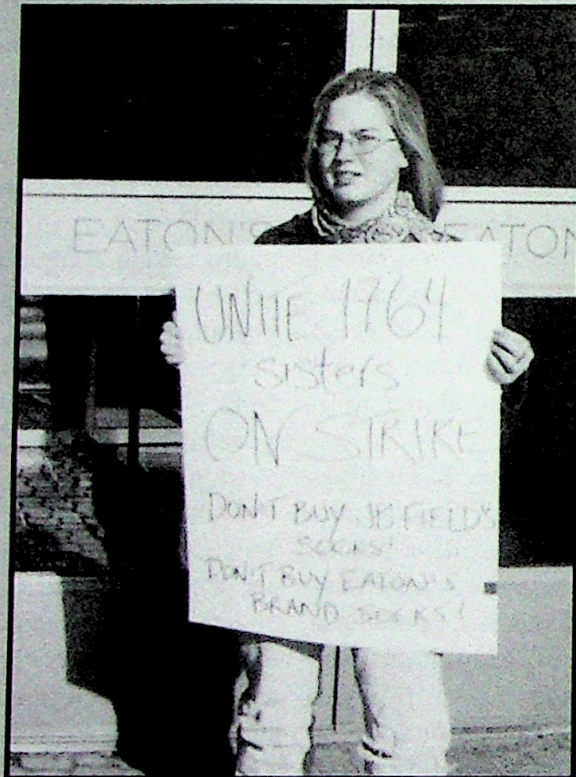 EATON'S EATON
UNITE 1764
sisters
ON STRIKE
DON'T BUY JB FIELD'S
SOCKS!
DON'T BUY EATON'S
BRAND SOCKS!